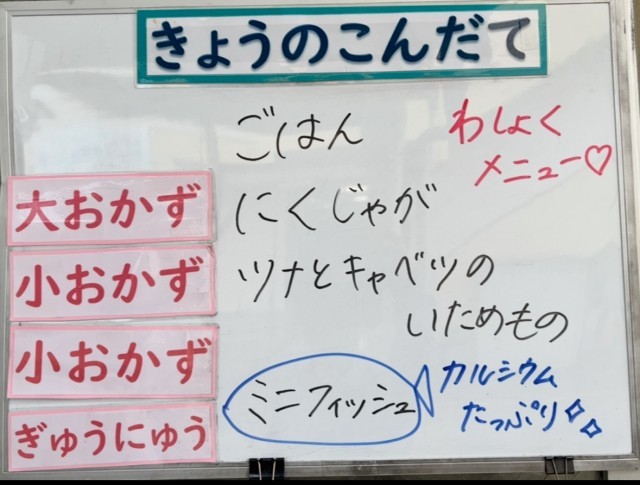 きょうのこんだて
ごはん
わしょく
メニュー♡
大おかず
にくじゃが
小おかず
ツナとキャベツの
いためもの
小おかず
ミニフィッシュ
カルシウム
たっぷり
ぎゅうにゅう